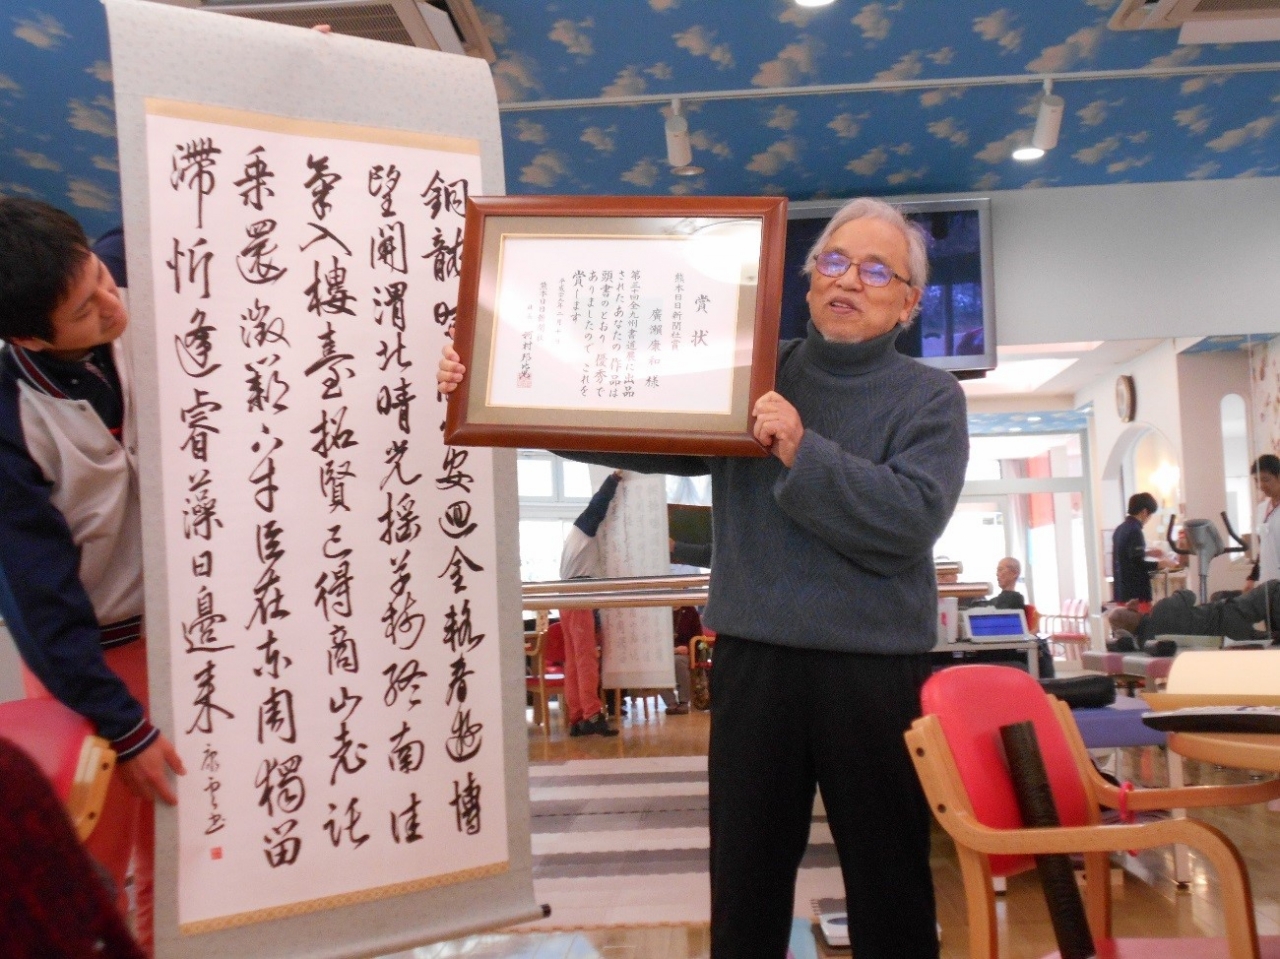 銅龍安迴金輅春遊博
望開渭北晴光搖草樹終南佳
氣入樓臺招賢已得商山老託
乗還徵鄴下才臣在東周獨留
滯忻逢睿藻日邊来
賞状
熊本日日新聞社賞
廣瀬康和様
十回全九州書道展に出品
されたあなたの作品は
頭書のとおり優秀で
ありましたのでこれを
賞します
熊本日日新聞社